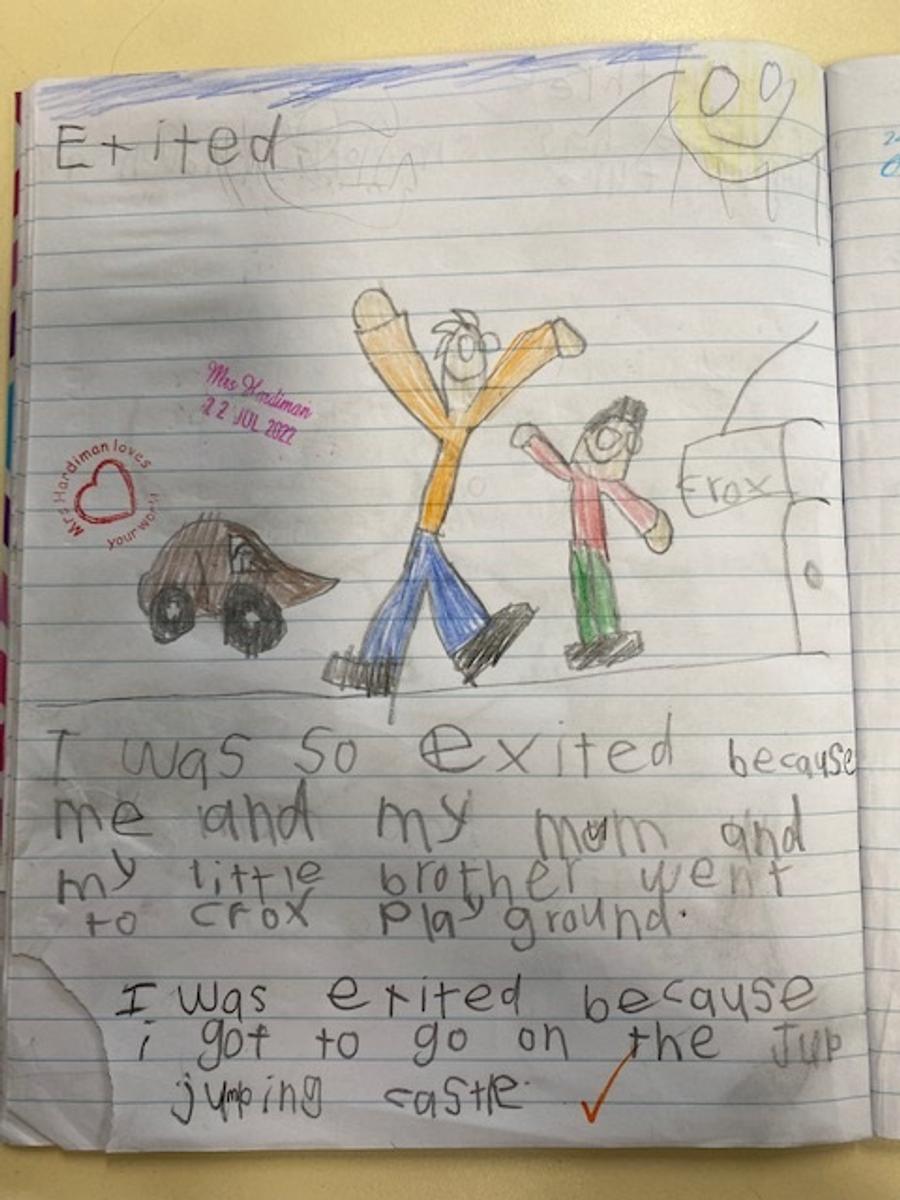 Exited
Mrs Hardiman
22 JUL 2022
Mrs Hardiman loves
your work
Crox
I was so exited because
me and my mum and
my little brother went
to crox playground.
I was exited because
i got to go on the Jup
jumping castle.